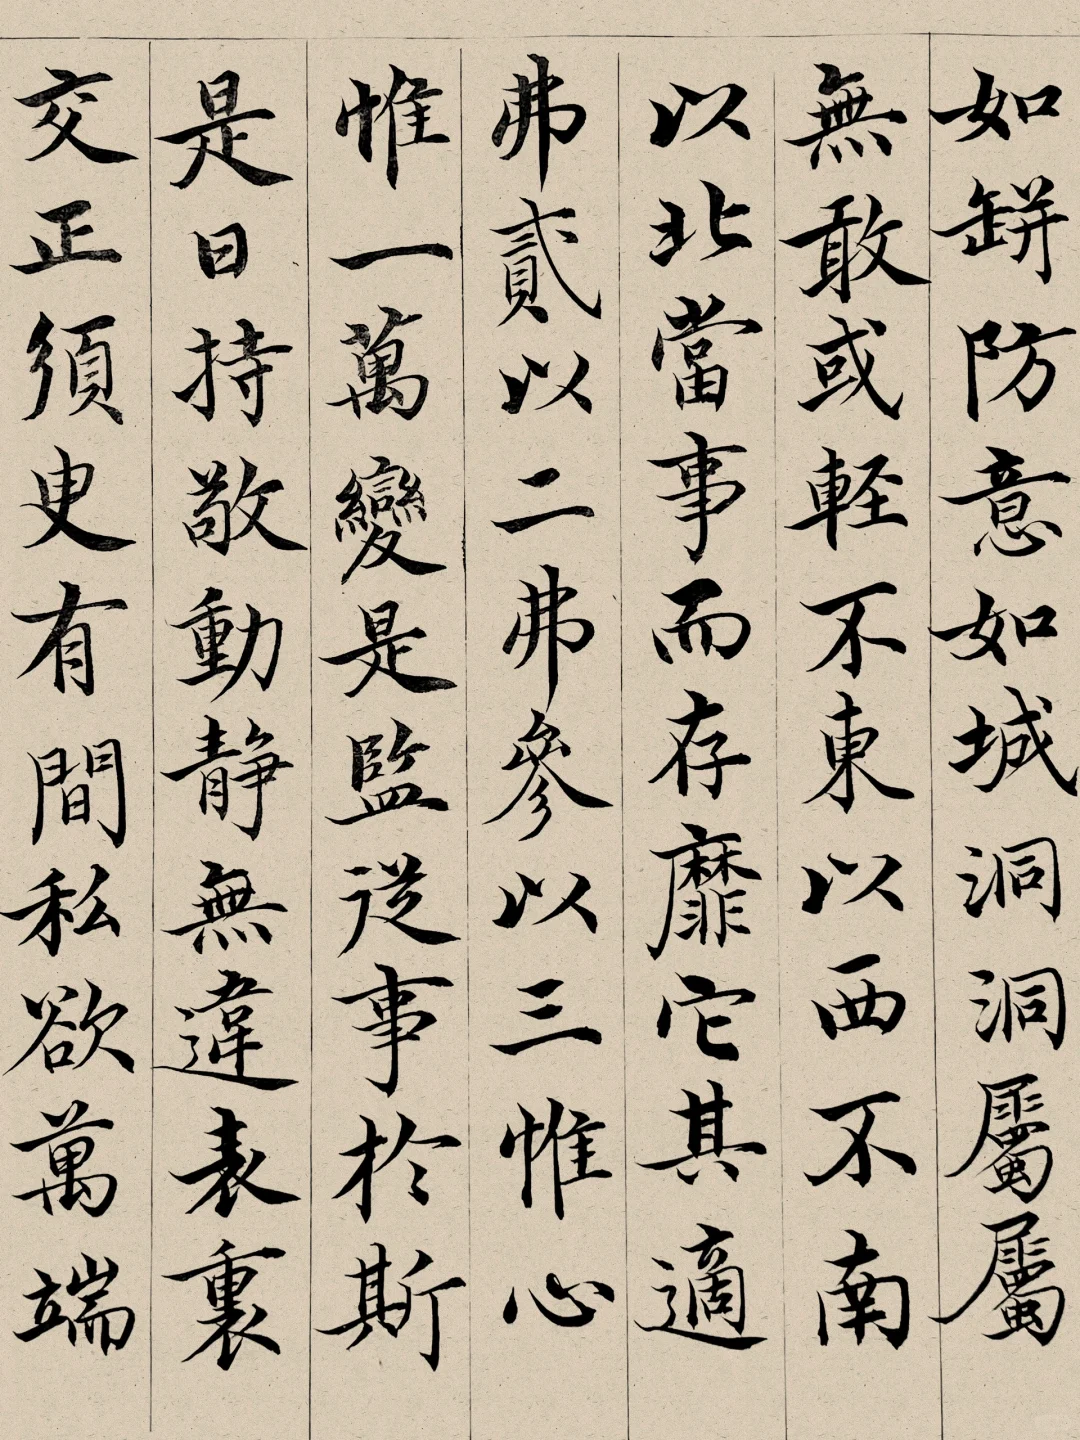 如缾防意如城洞洞屬屬
無敢或軽不東以西不南
以北當事而存靡它其適
弗貳以二弗參以三惟心
惟一萬變是監從事於斯
是曰持敬動静無違表裏
交正須臾有間私欲萬端